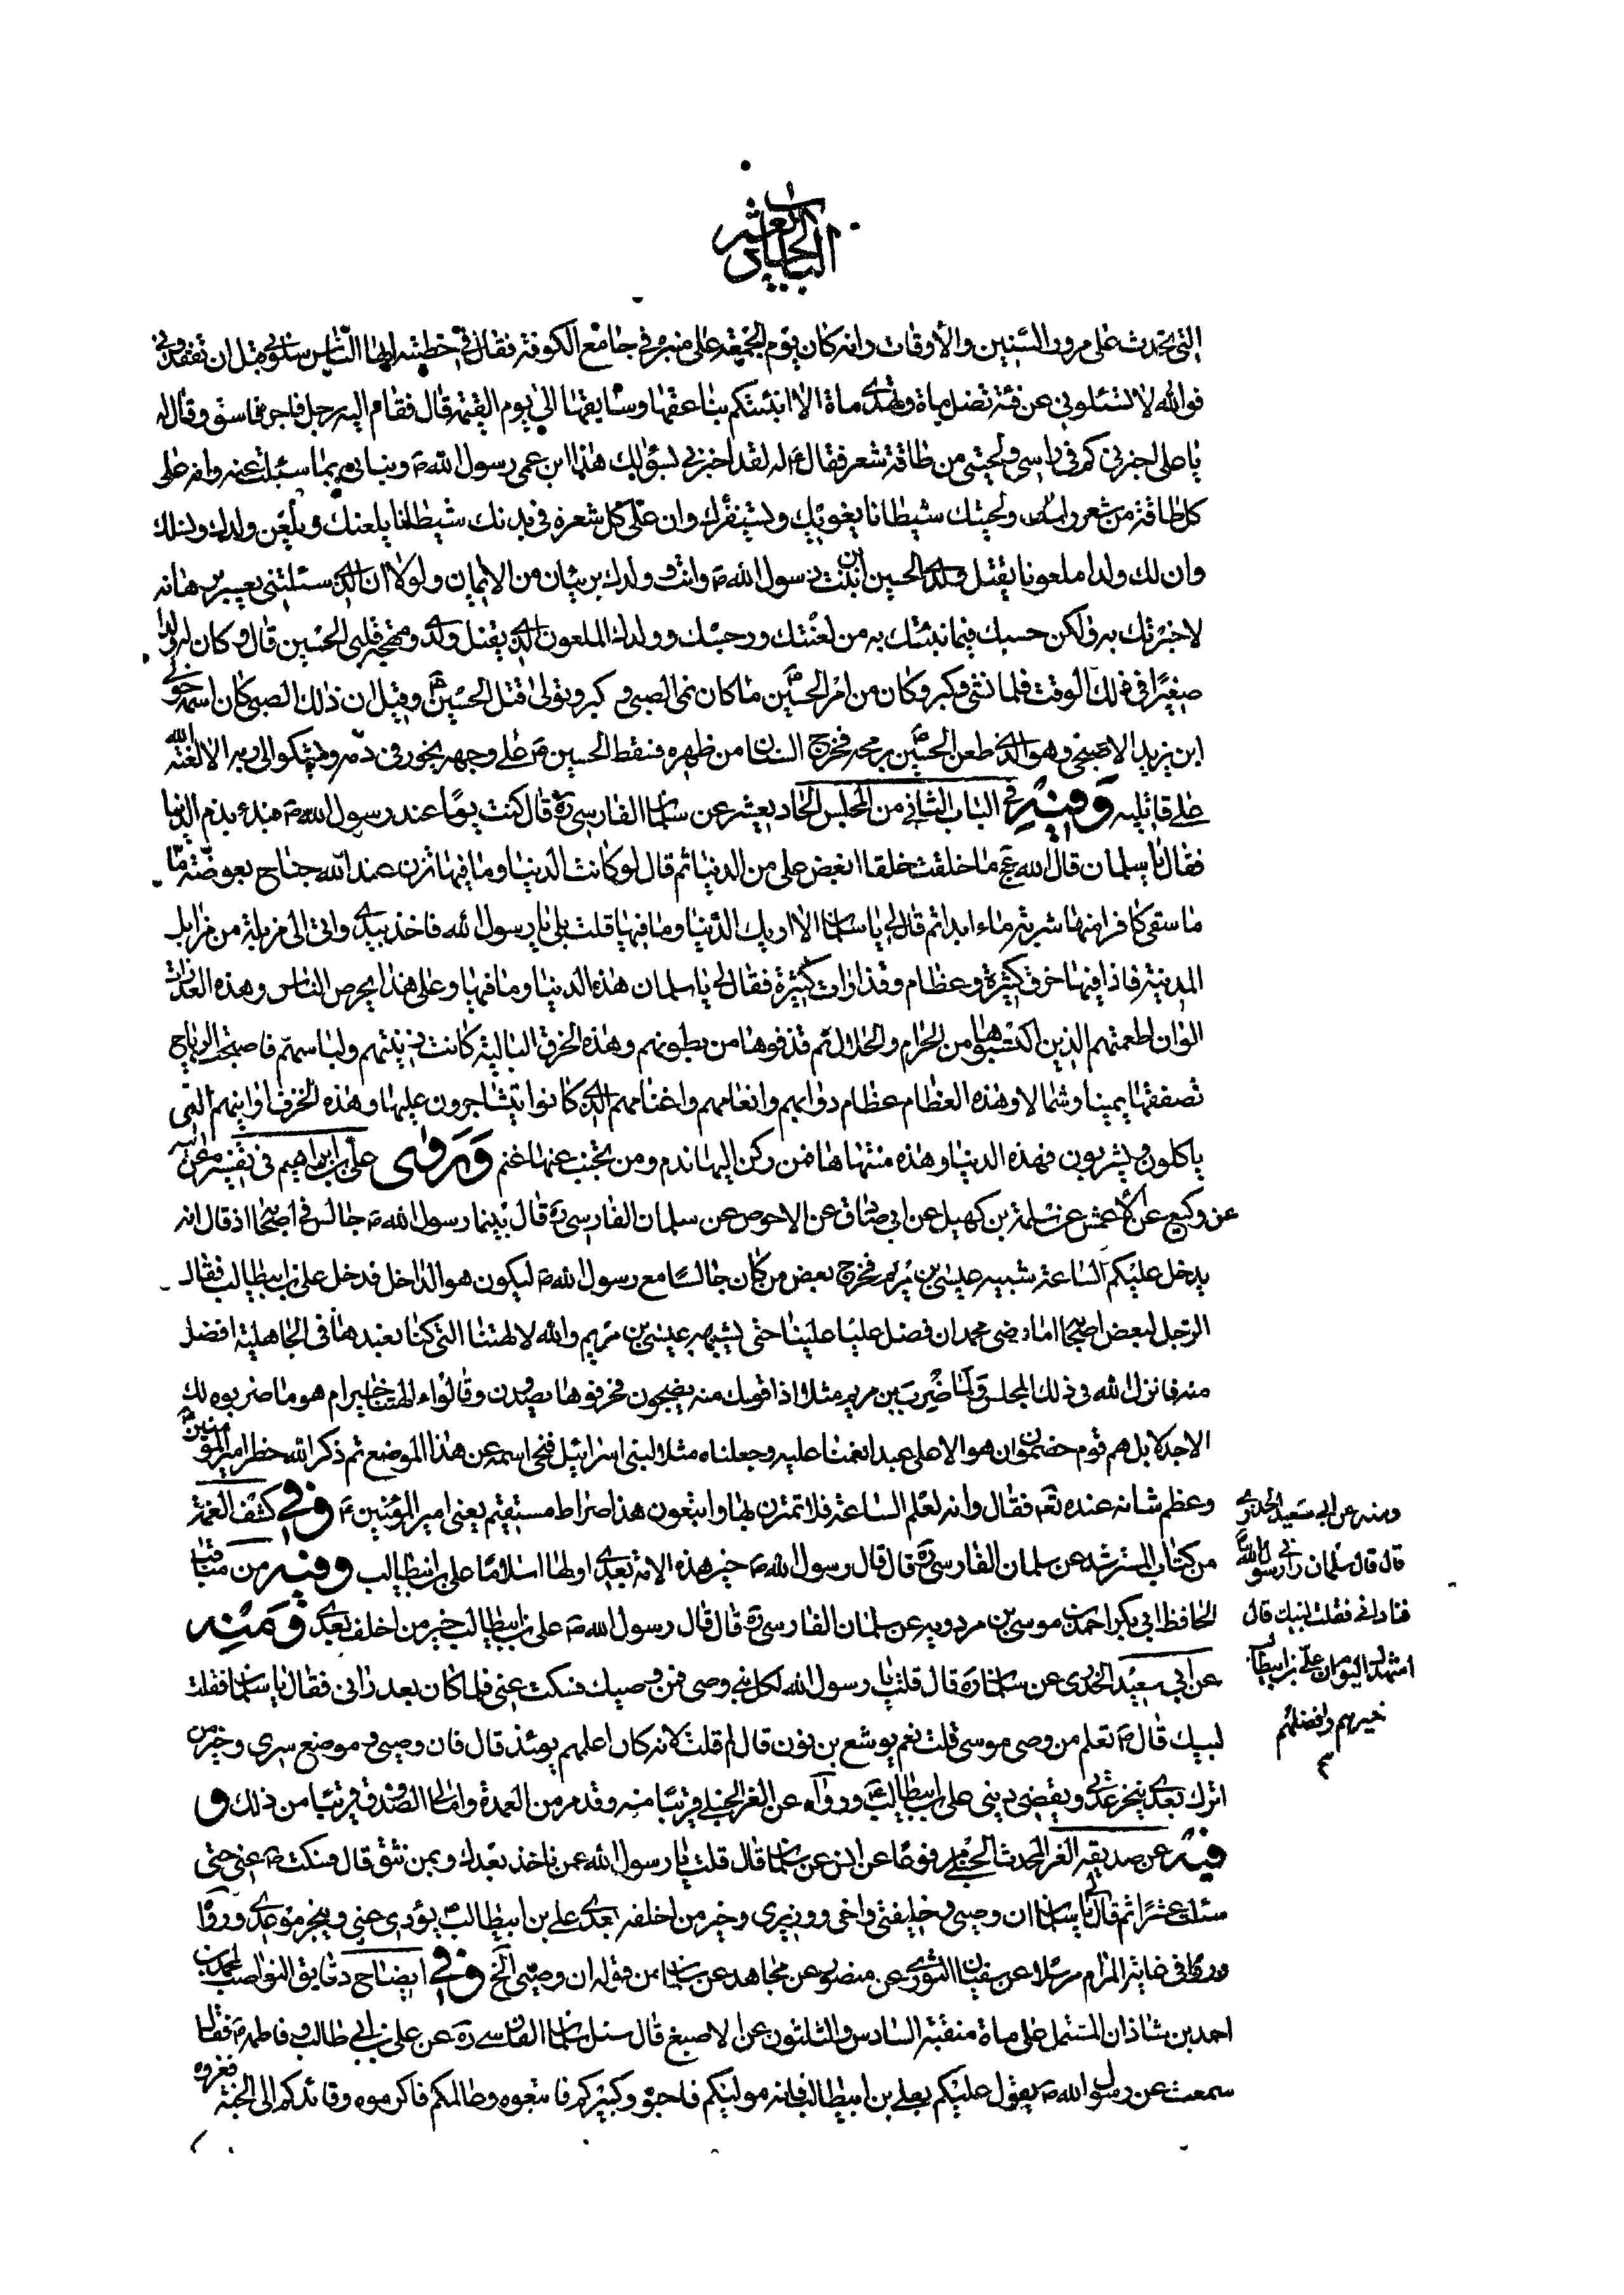 الباب الحادي عشر
التي تحدث على مرور السنين والأوقات وانه كان يوم الجمعة على منبره في جامع الكوفة فقال في خطبته ايها الناس سلوني قبل ان تفقدوني
فوالله لا تسئلوني عن فئة تضل مأة وتهدى مأة الا انبئتكم بناعقها وسايقها الى يوم القيمة قال فقام اليه رجل فاجر فاسق وقال له
يا علي اخبرني كم في راسي ولحيتي من طاقة شعر فقال له لقد اخبرني بسؤالك هذا ابن عمي رسول الله ص ونباني بما سئلت عنه وانه على
كل طاقة من شعر راسك ولحيتك شيطانا يغويك ويستفزك وان على كل شعرة في بدنك شيطانا يلعنك ويلعن ولدك ونسلك
وان لك ولدا ملعونا يقتل ولدى الحسين ابن بنت رسول الله ص وانت وولدك بريئان من الايمان ولولا ان الذي سئلتني يعسر برهانه
لاخبرتك به ولكن حسبك فيما نبئتك به من لعنتك ورجسك وولدك الملعون الذي يقتل ولدى ومهجة قلبي الحسين قال وكان له ولدا
صغيرا في ذلك الوقت فلما نشى وكبر وكان من امر الحسين ما كان نمى الصبي وكبر وتولى قتل الحسين وقيل ان ذلك الصبي كان اسمه خولي
ابن يزيد الاصبحي وهو الذي طعن الحسين برمحه فخرج السنان من ظهره فسقط الحسين على وجهه يخور في دمه ويشكو الى ربه الا لعنة الله
على قاتليه وفيه في الباب الثاني من المجلس الحادي عشر عن سلمان الفارسي ره قال كنت يوما عند رسول الله ص فبدء بذم الدنيا
فقال يا سلمان قال الله عج ما خلقت خلقا ابغض علي من الدنيا ثم قال لو كانت الدنيا وما فيها تزن عند الله جناح بعوضة ما
ما سقى كافرا منها شربة ماء ابدا ثم قال لي يا سلمان الا اريك الدنيا وما فيها قلت بلى يا رسول الله فاخذ بيدي واتى الى مزبلة من مزابل
المدينة فاذا فيها خرق كثيرة وعظام وقذاوات كثيرة فقال لي يا سلمان هذه الدنيا وما فيها وعلى هذا يحرص الناس وهذه العذرات
الوان اطعمتهم الذين اكتسبوها من الحرام والحلال ثم قذفوها من بطونهم وهذه الخرق البالية كانت زينتهم ولباسهم فاصبحت الرياح
تصفقها يمينا وشمالا وهذه العظام عظام دوابهم وانعامهم واغنامهم الذي كانوا يتشاجرون عليها وهذه الخزف اوانيهم التي
ياكلون ويشربون فهذه الدنيا وهذه منتهاها فمن ركن اليها ندم ومن تجنب عنها غنم وروى علي بن ابراهيم في تفسيره
عن وكيع عن الاعمش عن سلمة بن كهيل عن ابي صادق عن الاحوص عن سلمان الفارسي ره قال بينما رسول الله ص جالس في اصحابه اذ قال انه
يدخل عليكم الساعة شبيه عيسى بن مريم فخرج بعض من كان جالسا مع رسول الله ص ليكون هو الداخل فدخل علي بن ابيطالب فقال
الرجل لبعض اصحابه اما رضي محمد ان فضل عليا علينا حتى يشبهه بعيسى بن مريم والله لالهتنا التي كنا نعبدها في الجاهلية افضل
منه فانزل الله في ذلك المجلس ولما ضرب ابن مريم مثلا اذا قومك منه يضجون فحرفوها يصدون وقالوا ءالهتنا خير ام هو ما ضربوه لك
الا جدلا بل هم قوم خصمون ان هو الا علي عبد انعمنا عليه وجعلناه مثلا لبني اسرائيل فمحى اسمه عن هذا الموضع ثم ذكر الله خطر امير المؤمنين
وعظم شانه عنده تعه فقال وانه لعلم الساعة فلا تمترن بها واتبعون هذا صراط مستقيم يعني امير المؤمنين وفي كشف الغمة
من كتاب المسترشد عن سلمان الفارسي ره قال قال رسول الله ص خير هذه الامة بعدي اولها اسلاما علي بن ابيطالب وفيه من مناقب
الحافظ ابي بكر احمد بن موسى بن مردويه عن سلمان الفارسي ره قال قال رسول الله ص علي بن ابيطالب خير من اخلف بعدي ومنه
عن ابي سعيد الخدري عن سلمان ره قال قلت يا رسول الله لكل نبي وصي فمن وصيك فسكت عني فلما كان بعد راني فقال يا سلمان فقلت
لبيك قال ص تعلم من وصي موسى قلت نعم يوشع بن نون قال لم قلت لانه كان اعلمهم يومئذ قال فان وصيي وموضع سري وخير من
اترك بعدي ينجز عدتي ويقضي ديني علي بن ابيطالب ورواه عن العز الحنبلي قريبا منه وقد مر من العمدة وامالي الصدوق قريبا من ذلك و
فيه عن صديقه العز المحدث الحنبلي مرفوعا عن انس عن سلمان قال قلت يا رسول الله عمن ناخذ بعدك وبمن نثق قال فسكت عني حتى
سئلت عشرا ثم قال لي يا سلمان ان وصيي وخليفتي واخي ووزيري وخير من اخلفه بعدي علي بن ابيطالب يؤدي عني وينجز موعدي ورواه
ورواه في غاية المرام مرسلا عن سفيان الثوري عن منصور عن مجاهد عن سلمان من قوله ان وصيي الخ وفي ايضاح دقايق النواصب لمحمد بن
احمد بن شاذان المشتمل على مأة منقبة السادس والثلثون عن الاصبغ قال سئل سلمان الفارسي ره عن علي بن ابي طالب وفاطمة فقال
سمعت عن رسول الله ص يقول عليكم بعلي بن ابيطالب فانه موليكم فاحبوه وكبيركم فاتبعوه وعالمكم فاكرموه وقائدكم الى الجنة فعزروه
ومنه عن ابي سعيد الخدري
قال قال سلمان راني رسول الله
فناداني فقلت لبيك قال
اشهدك اليوم ان علي بن ابيطالب
خيرهم وافضلهم